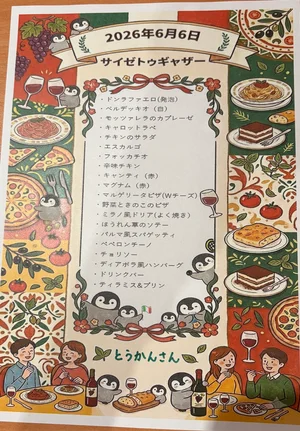 2026年6月6日
サイゼトゥギャザー
・ドンラファエロ(発泡)
・ベルデッキオ(白)
・モッツァレラのカプレーゼ
・キャロットラペ
・チキンのサラダ
・エスカルゴ
・フォッカチオ
・辛味チキン
・キャンティ(赤)
・マグナム(赤)
・マルゲリータピザ(Wチーズ)
・野菜ときのこのピザ
・ミラノ風ドリア(よく焼き)
・ほうれん草のソテー
・パルマ風スパゲッティ
・ペペロンチーノ
・チョリソー
・ディアボラ風ハンバーグ
・ドリンクバー
・ティラミス&プリン
とうかんさん